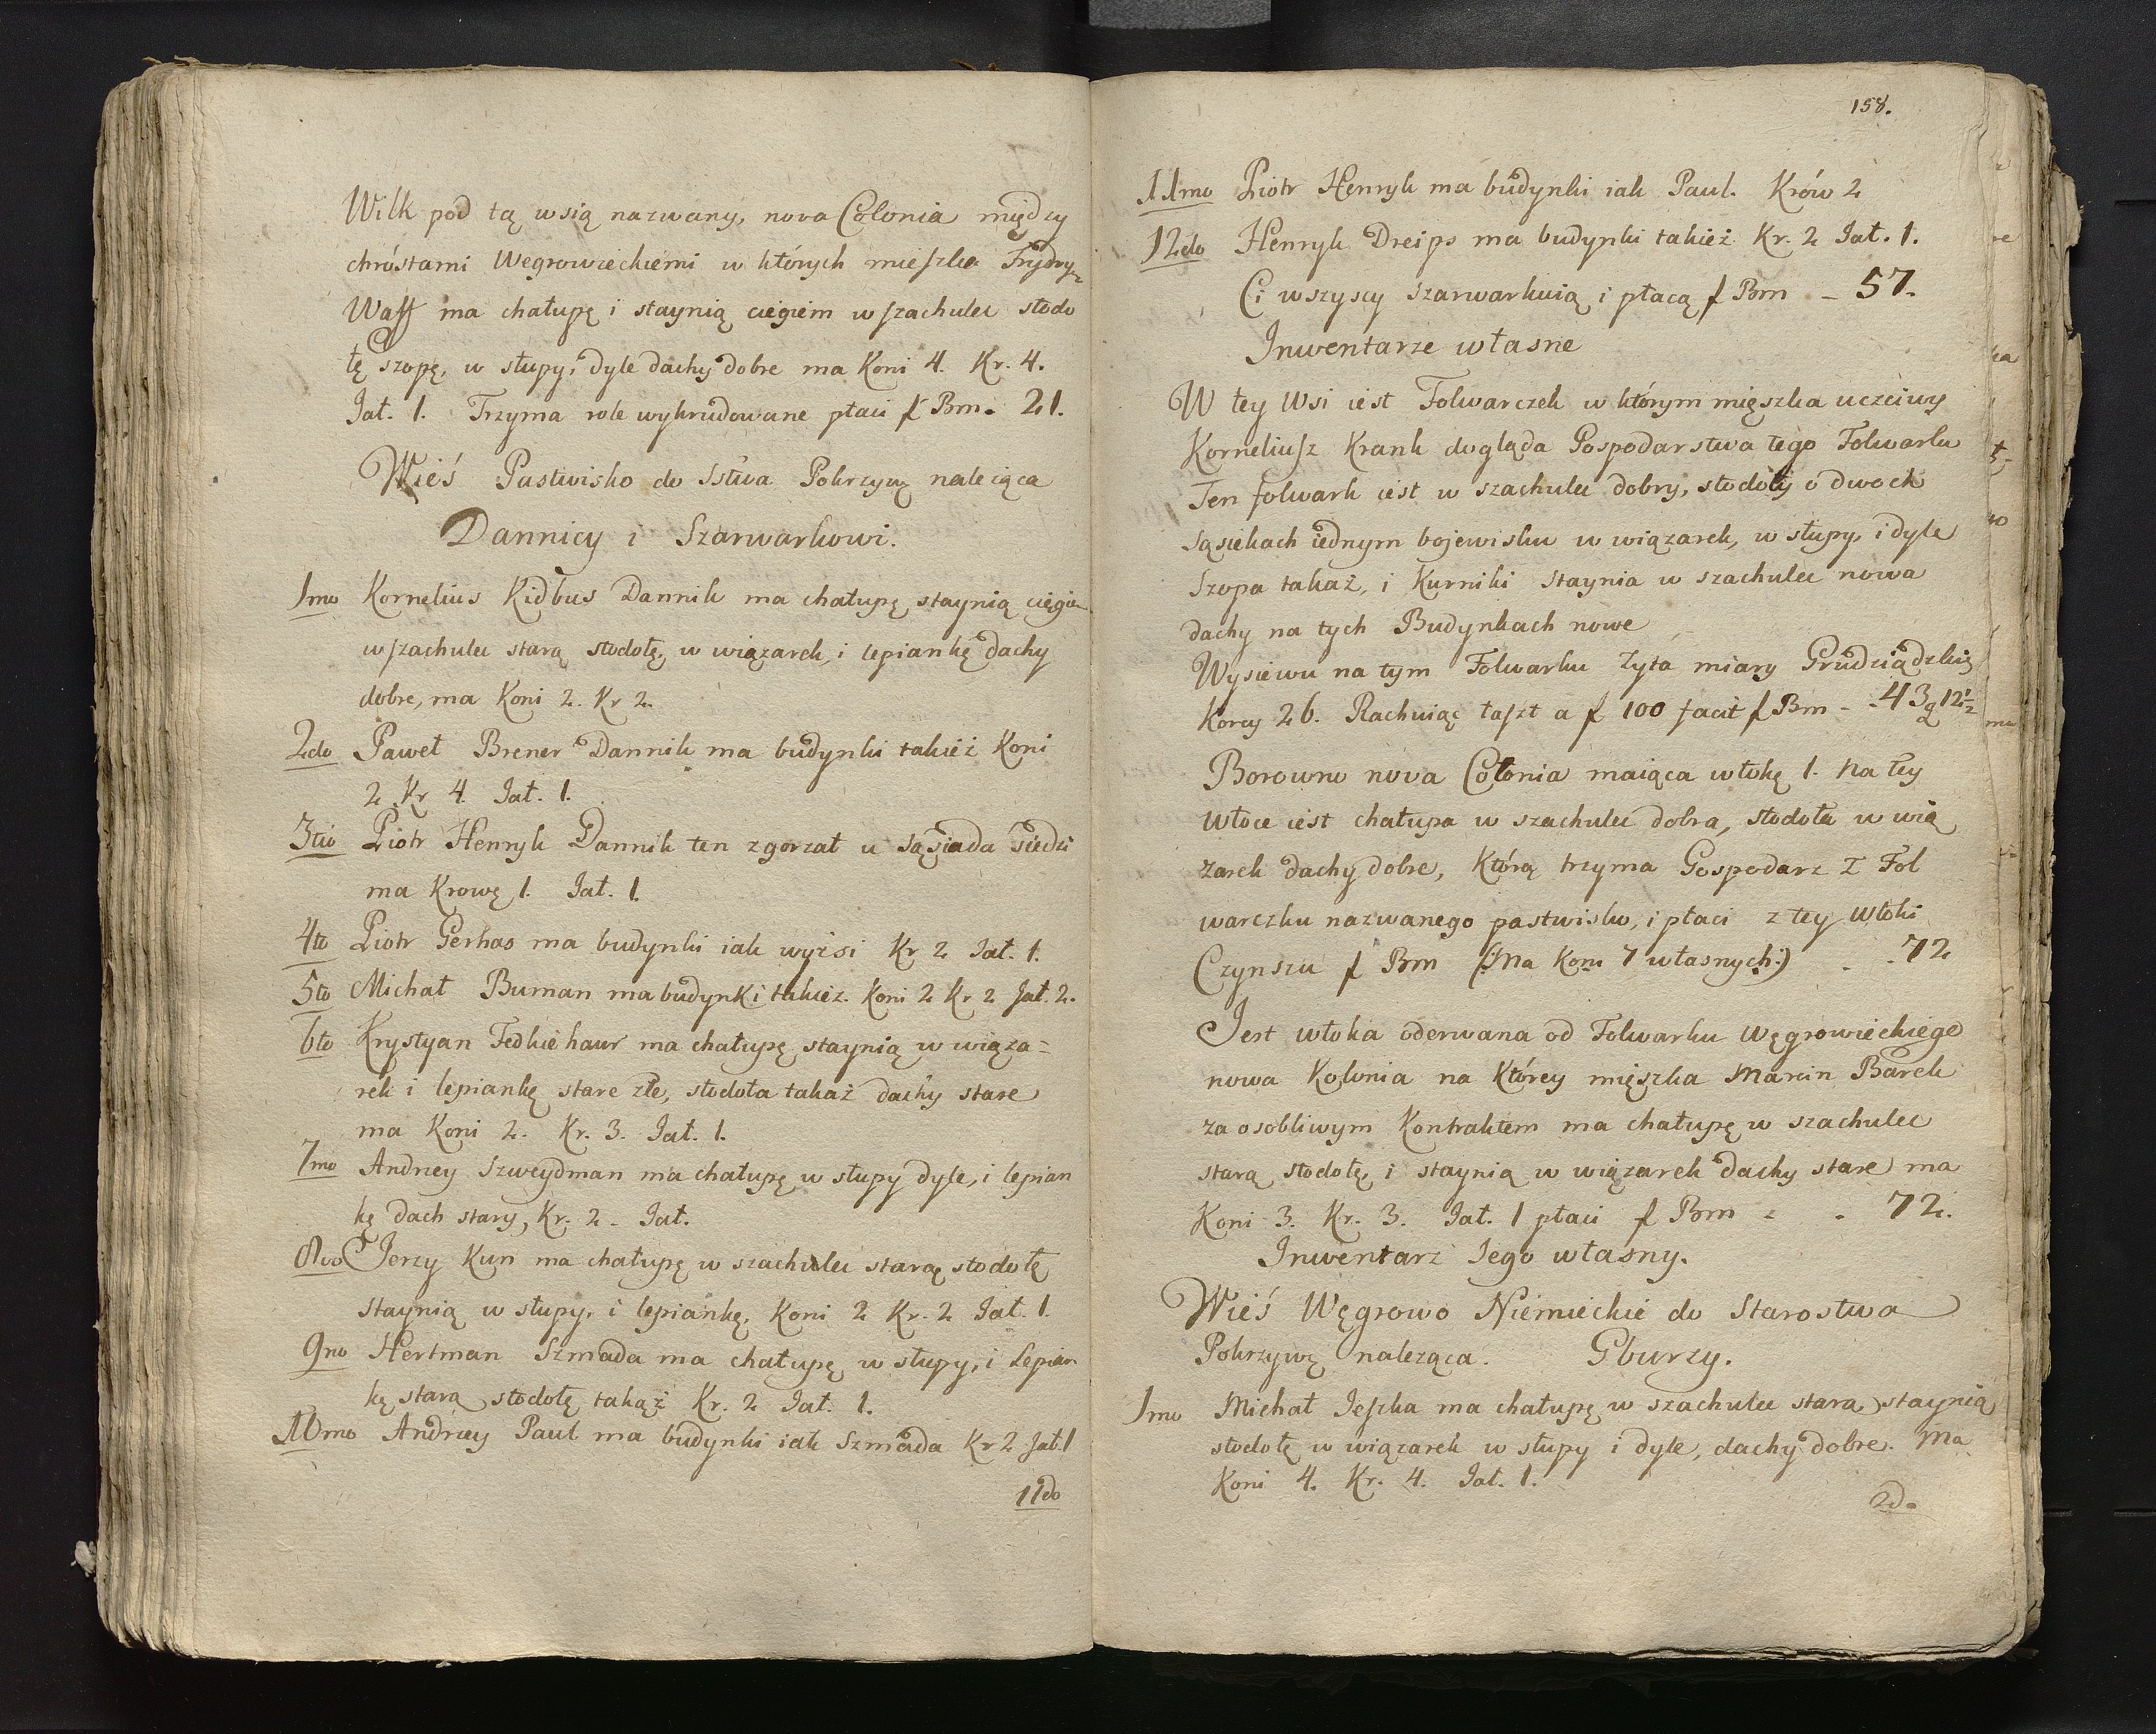 Wilk pod tą wsią nazwany, nova Colonia między
chróstami Węgrowieckiemi w których mieszka Frydry
Walff ma chałupę i staynią cięgiem w szachulec stodo
łę szopę, w słupy, dyle dachy dobre ma Koni 4. Kr. 4.
Jał. 1. Trzyma role wykrudowane płaci f Brn. 21.
Wieś Pastwisko do Sstwa Pokrzywę należąca
Dannicy i Szarwarkowi.
1mo Kornelius Kidbus Dannik ma chałupę staynią cięgiem
w szachulec starą stodołę, w wiązarek, i lepiankę dachy
dobre, ma Koni 2. Kr 2.
2do Paweł Brener Dannik ma budynki takież Koni
2 Kr 4. Jał. 1.
3tio Piotr Henryk Dannik ten zgorzał u sąsiada siedzi
ma Krowę 1. Jał. 1.
4to Piotr Gerhas ma budynki iak wyżsi Kr 2 Jał. 1.
5to Michał Buman ma budynki takież. Koni 2 Kr 2 Jał. 2.
6to Krystyan Fedkiehaur ma chałupę, staynią w wiąza=
rek i lepiankę stare złe, stodoła takaż dachy stare
ma Koni 2. Kr. 3. Jał. 1.
7mo Andrzey Szweydman ma chałupę w słupy dyle, i lepian
kę dach stary, Kr. 2 - Jał.
8vo Jerzy Kun ma chałupę w szachulec starą stodołę
staynią w słupy, i lepiankę, Koni 2 Kr. 2 Jał. 1.
9no Hertman Szmada ma chałupę w słupy, i Lepian
kę starą stodołę takąż Kr. 2 Jał. 1.
10mo Andrzey Paul ma budynki iak Szmada Kr 2 Jał. 1
11do
158.
11mo Piotr Henryk ma budynki iak Paul. Krów 2
12do Henryk Dreips ma budynki takież Kr. 2 Jał. 1.
Ci wszyscy szarwarkuią i płacą f Brn - 57.
Inwentarze własne
W tey Wsi iest Folwarczek w którym mięszka uczciwy
Korneliusz Krank dogląda Gospodarstwa tego Folwarku
Ten folwark iest w szachulec dobry, stodoły o dwoch
sąsiekach iednym bojewisku w wiązarek, w słupy, i dyle
Szopa takaż, i Kurniki staynia w szachulec nowa
dachy na tych Budynkach nowe
Wysiewu na tym Folwarku Zyta miary Grudziądzkię
Korcy 26. Rachuiąc łaszt a f 100 facit f Brn - 43 g 12½
Borowno nova Colonia maiąca włokę 1. Na tey
włoce iest chałupa w szachulec dobra, stodoła w wią
zarek dachy dobre, Którą trzyma Gospodarz z Fol
warczku nazwanego pastwisko, i płaci z tey włoki
Czynszu f Brn (: Ma Koni 7 własnych:) - - 72
Jest włoka oderwana od Folwarku Węgrowieckiego
nowa Kolonia na którey mięszka Marcin Barek
za osobliwym Kontraktem ma chałupę w szachulec
starą stodołę, i staynią w wiązarek dachy stare ma
Koni 3. Kr. 3. Jał. 1 płaci f Brn - - 72.
Inwentarz Jego własny.
Wieś Węgrowo Niemieckie do Starostwa
Pokrzywę należąca. Gburzy.
1mo Michał Jeszka ma chałupę w szachulec starą staynią
stodołę w wiązarek w słupy i dyle, dachy dobre. Ma
Koni 4. Kr. 4. Jał. 1.
2do